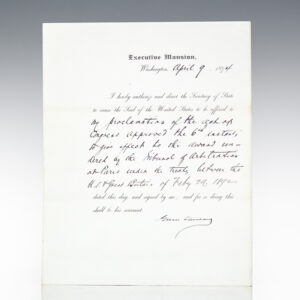 Executive Mansion,
Washington, April 9, 1894
I hereby authorize and direct the Secretary of State
to cause the Seal of the United States to be affixed to
my proclamation of the act of
Congress approved the 6th instant,
to give effect to the award ren-
dered by the Tribunal of Arbitration
at Paris under the Treaty between the
U.S. & Great Britain of Feby 29, 1892
dated this day, and signed by me; and for so doing this
shall be his warrant.